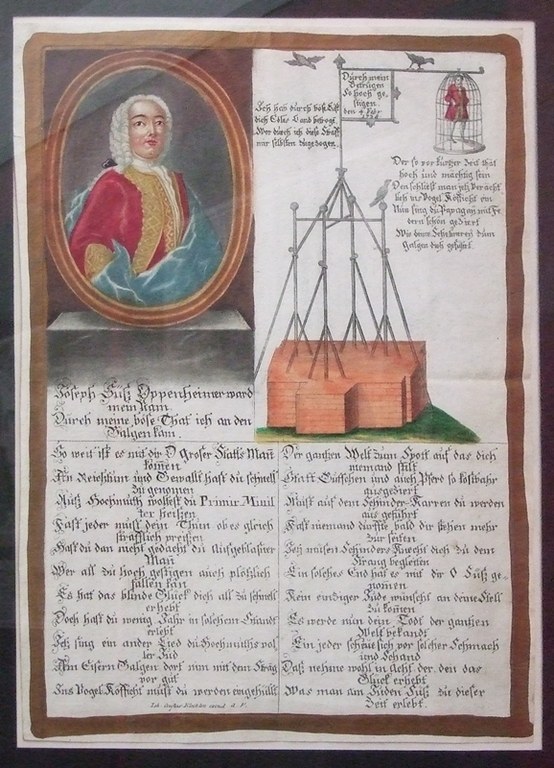 Joseph Süß Oppenheimer ward
mein Nam
Durch meine böse That ich an den
Galgen kam.
Ich hab durch böß List
dieß Edle Land betrogn
Wer durch ich diese Straff
mir selbsten zugezogen.
Durch mein
Betrügen
So hoch ge¬
stigen
den 4 Febr
1738
Der so vor kurtzer Zeit that
hoch und mächtig sein
Den schliest man jetz verächt
lich ins Vogel Kefficht ein
Nun sing du Papagay mit Fe
dern schön geziert
Wie deine Schelmerey zum
Galgen dich geführt.
So weit ist es mit dir O großer Statts Mañ
komen
An Reichthum und Gewallt hast du schnell
zugenomen
Auß Hochmuth woltest du Primir Minis
ter heißen
Fast jeder must dein Thun ob es gleich
sträfflich preißen
Hast du dan nicht gedacht du Aufgeblasner
Mañ
Wer all zu hoch gestigen auch plötzlich
fallen kan
Es hat das blinde Glück dich all zu schnell
erhebt
Doch hast du wenig Jahr in solchem Standt
erlebt
Jetz sing ein ander Lied du Hochmuths vol
ler Jud
Am Eisern Galgen dort nim mit dem Strag
vor gut
Ins Vogel Kefficht must du werden eingehüllt
Der gantzen Welt zum Spott auf das dich
niemand stilt
Statt Gutschen und auch Pferd so kostbahr
ausgeziert
Must auf dem Schinder Karren du werden
aus geführt
Fast niemand dürffte bald dir stehen mehr
zur seiten
Jetz müsen Schinders Knecht dich zu dem
Strang begleiten
Ein solches End hat es mit dir O Süß ge¬
nomen
Kein eintziger Jude wünscht an deine Stell
zu komen
Es werde nun dein Todt der gantzen
Welt bekandt
Ein jeder scheue sich vor solcher Schmach
und Schand
Daß nehme wohl in Acht der den das
Glück erhebt
Was man am Juden Süß zu dieser
Zeit erlebt.